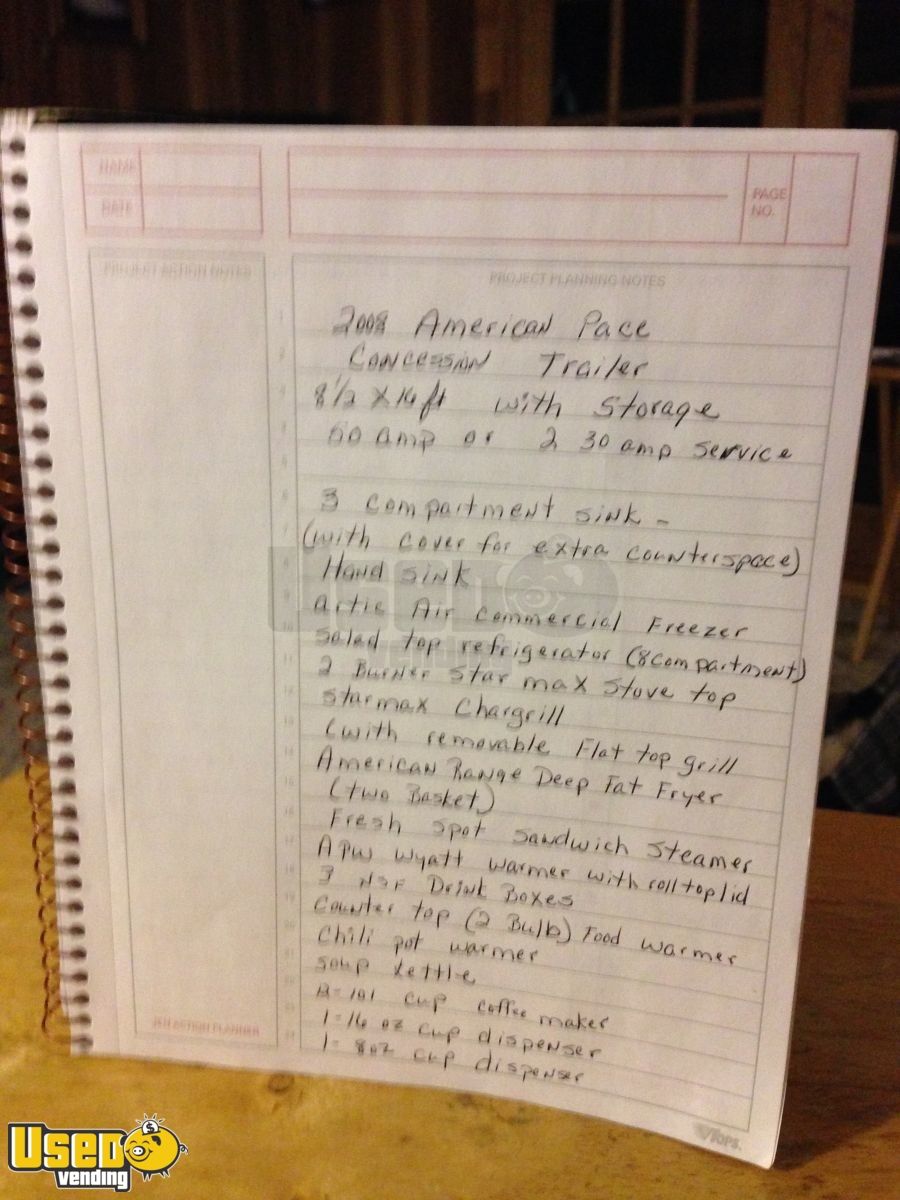 NAME
DATE
PAGE NO.
PROJECT ACTION NOTES
PROJECT PLANNING NOTES
2008 American Pace
Concession Trailer
8 1/2 x 16 ft with storage
50 amp or 2 30 amp service
3 compartment sink -
(with cover for extra counterspace)
Hand sink
artic Air commercial Freezer
salad top refrigerator (8 compartment)
2 Burner Star max Stove top
starmax Chargrill
(with removable Flat top grill
American Range Deep Fat Fryer
(two Basket)
Fresh spot sandwich steamer
APW Wyatt warmer with roll top lid
3 NSF Drink Boxes
Counter top (2 Bulb) Food warmer
Chili pot warmer
soup kettle
101 cup coffee maker
1-16 oz cup dispenser
1- 8oz cup dispenser
ACTION PLANNER
TOPS
USED vending